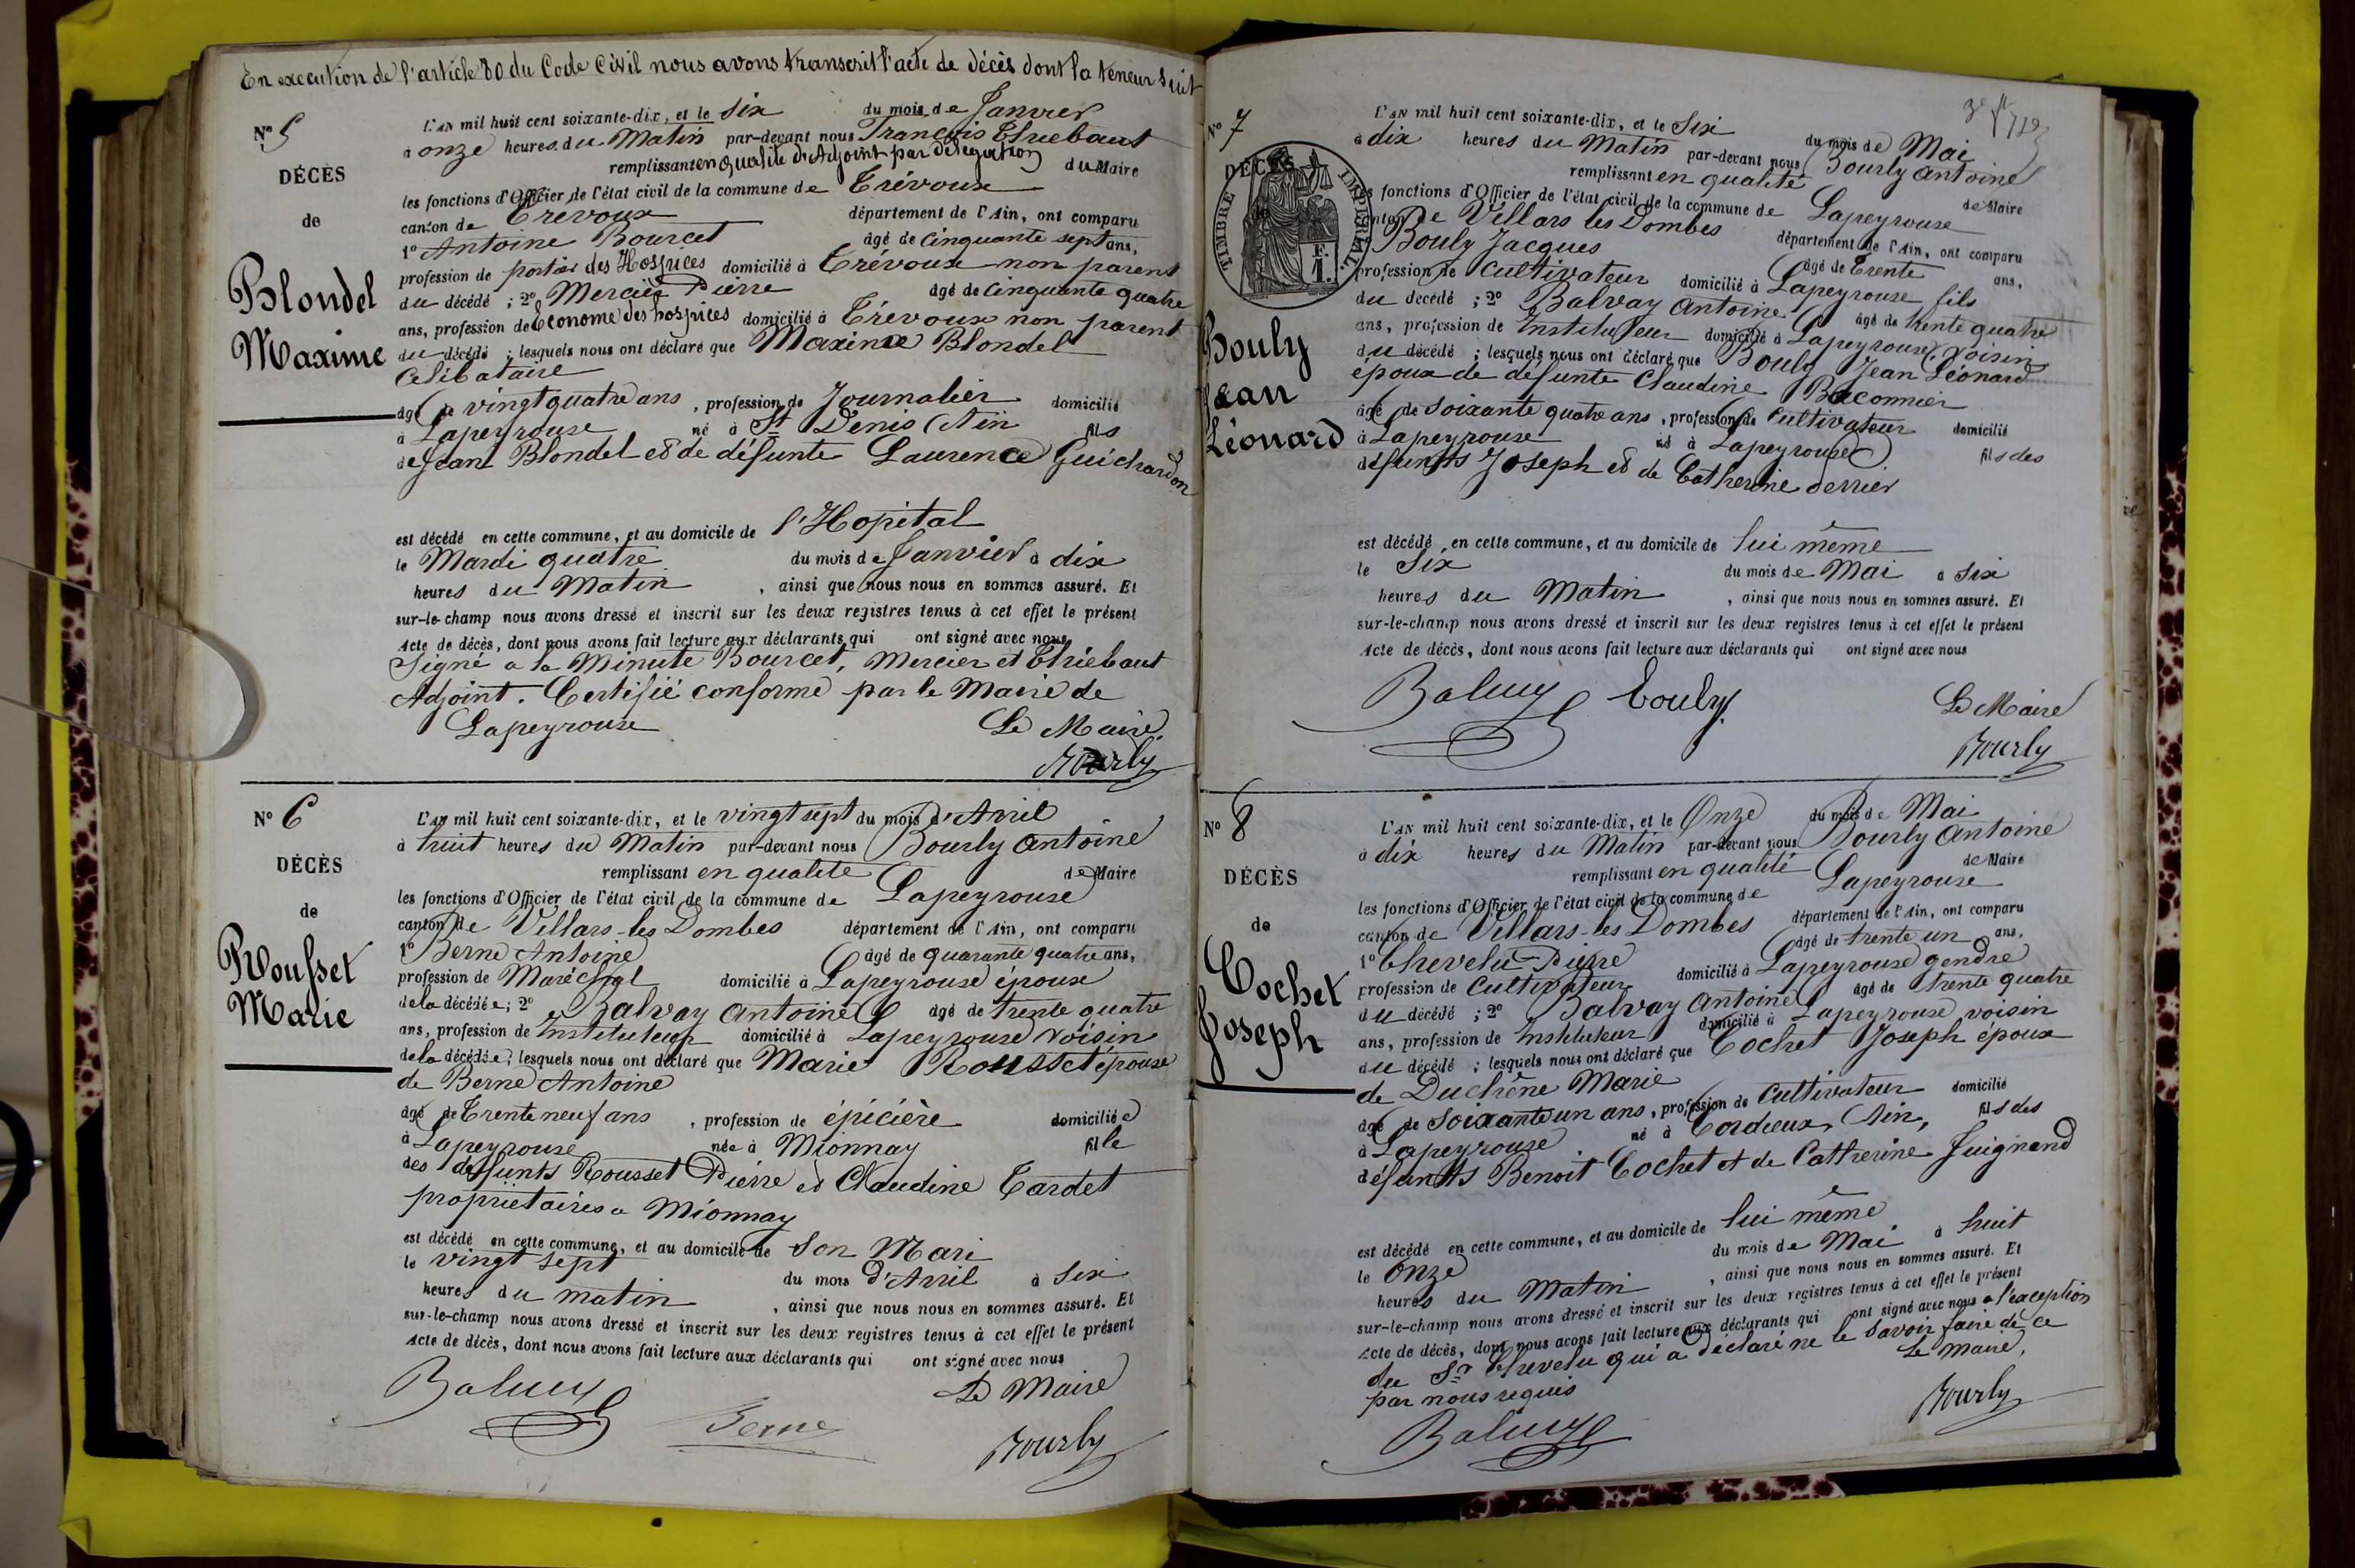 En execution de l'article 80 du Code Civil nous avons transcrit l'acte de décès dont la teneur suit
N° 5
DÉCÈS
de
Blondel
Maxime
L'AN mil huit cent soixante-dix, et le six du mois de Janvier
à onze heures du Matin par-devant nous François Thiebaut
remplissant en qualité d'Adjoint par délégation du Maire
les fonctions d'Officier de l'état civil de la commune de Trévoux
canton de Trévoux département de l'Ain, ont comparu
1° Antoine Bourcet âgé de Cinquante sept ans,
profession de portier des Hospices domicilié à Trévoux non parent
du décédé ; 2° Mercier Pierre âgé de Cinquante quatre
ans, profession de Econome des hospices domicilié à Trévoux non parent
du décédé ; lesquels nous ont déclaré que Maxime Blondel
Célibataire
âgé de vingt quatre ans, profession de Journalier domicilié
à Lapeyrouse né à St Denis (Ain fils
de Jean Blondel et de défunte Laurence Guichardon
est décédé en cette commune, et au domicile de l'Hopital
le Mardi quatre du mois de Janvier à dix
heures du Matin, ainsi que nous nous en sommes assuré. Et
sur-le-champ nous avons dressé et inscrit sur les deux registres tenus à cet effet le présent
Acte de décès, dont nous avons fait lecture aux déclarants qui ont signé avec nous
Signé a la Minute Bourcet, Mercier et Thiebaut
Adjoint. Certifié conforme par le Maire de
Lapeyrouse Le Maire,
Bourly
N° 6
DÉCÈS
de
Rousset
Marie
L'AN mil huit cent soixante-dix, et le vingt sept du mois d'Avril
à huit heures du Matin par-devant nous Bourly Antoine
remplissant en qualité de Maire
les fonctions d'Officier de l'état civil de la commune de Lapeyrouse
canton de Villars-les Dombes département de l'Ain, ont comparu
1° Berne Antoine âgé de quarante quatre ans,
profession de Maréchal domicilié à Lapeyrouse époux
de la décédée ; 2° Balvay Antoine âgé de trente quatre
ans, profession de Instituteur domicilié à Lapeyrouse voisin
de la décédée ; lesquels nous ont déclaré que Marie Rousset épouse
de Berne Antoine
âgé de Trente neuf ans, profession de épicière domiciliée
à Lapeyrouse née à Mionnay fille
des défunts Rousset Pierre et Claudine Cardet
propriétaires a Mionnay
est décédé en cette commune, et au domicile de Son Mari
le vingt sept du mois d'Avril à Six
heures du matin, ainsi que nous nous en sommes assuré. Et
sur-le-champ nous avons dressé et inscrit sur les deux registres tenus à cet effet le présent
Acte de décès, dont nous avons fait lecture aux déclarants qui ont signé avec nous
Balvay Berne Le Maire
Bourly
N° 7
DÉCÈS
TIMBRE IMPÉRIAL
F.
1.
Bouly
Jean
Léonard
L'AN mil huit cent soixante-dix, et le Six du mois de Mai
à dix heures du Matin par-devant nous Bourly Antoine
remplissant en qualité de Maire
les fonctions d'Officier de l'état civil de la commune de Lapeyrouse
canton de Villars les Dombes département de l'Ain, ont comparu
Bouly Jacques âgé de Trente ans,
profession de Cultivateur domicilié à Lapeyrouse fils
du décédé ; 2° Balvay Antoine âgé de trente quatre
ans, profession de Instituteur domicilié à Lapeyrouse, voisin
du décédé ; lesquels nous ont déclaré que Bouly Jean Léonard
époux de défunte Claudine Baconnier
âgé de Soixante quatre ans, profession de Cultivateur domicilié
à Lapeyrouse né à Lapeyrouse fils des
défunts Joseph et de Catherine derrier
est décédé en cette commune, et au domicile de lui même
le Six du mois de Mai à Six
heures du Matin, ainsi que nous nous en sommes assuré. Et
sur-le-champ nous avons dressé et inscrit sur les deux registres tenus à cet effet le présent
Acte de décès, dont nous avons fait lecture aux déclarants qui ont signé avec nous
Balvay Bouly Le Maire
Bourly
N° 8
DÉCÈS
de
Cochet
Joseph
L'AN mil huit cent soixante-dix, et le Onze du mois de Mai
à dix heures du Matin par-devant nous Bourly Antoine
remplissant en qualité de Maire
les fonctions d'Officier de l'état civil de la commune de Lapeyrouse
canton de Villars-les Dombes département de l'Ain, ont comparu
1° Chevelu Pierre âgé de trente un ans,
profession de Cultivateur domicilié à Lapeyrouse gendre
du décédé ; 2° Balvay Antoine âgé de trente quatre
ans, profession de Instituteur domicilié à Lapeyrouse voisin
du décédé ; lesquels nous ont déclaré que Cochet Joseph époux
de Duchêne Marie
âgé de Soixante un ans, profession de Cultivateur domicilié
à Lapeyrouse né à Cordieux, Ain, fils des
défunts Benoit Cochet et de Catherine Juignand
est décédé en cette commune, et au domicile de lui même
le Onze du mois de Mai à huit
heures du Matin, ainsi que nous nous en sommes assuré. Et
sur-le-champ nous avons dressé et inscrit sur les deux registres tenus à cet effet le présent
Acte de décès, dont nous avons fait lecture aux déclarants qui ont signé avec nous a l'exception
du Sr Chevelu qui a déclaré ne le savoir faire de ce
par nous requis Le maire,
Balvay Bourly